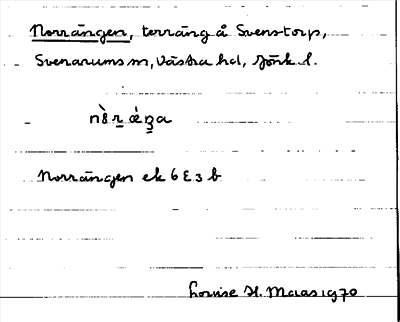 Norrängen, terräng å Svenstorp,
Svenarums sn, Västra hd, Jönk l.
Norrängen ek 6E3b
Louise H. Maas 1970